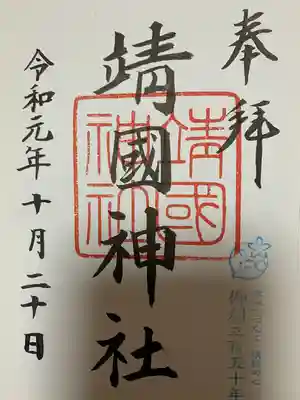 奉拝
靖國神社
靖國
神社
令和元年十月二十日
御創立百五十年